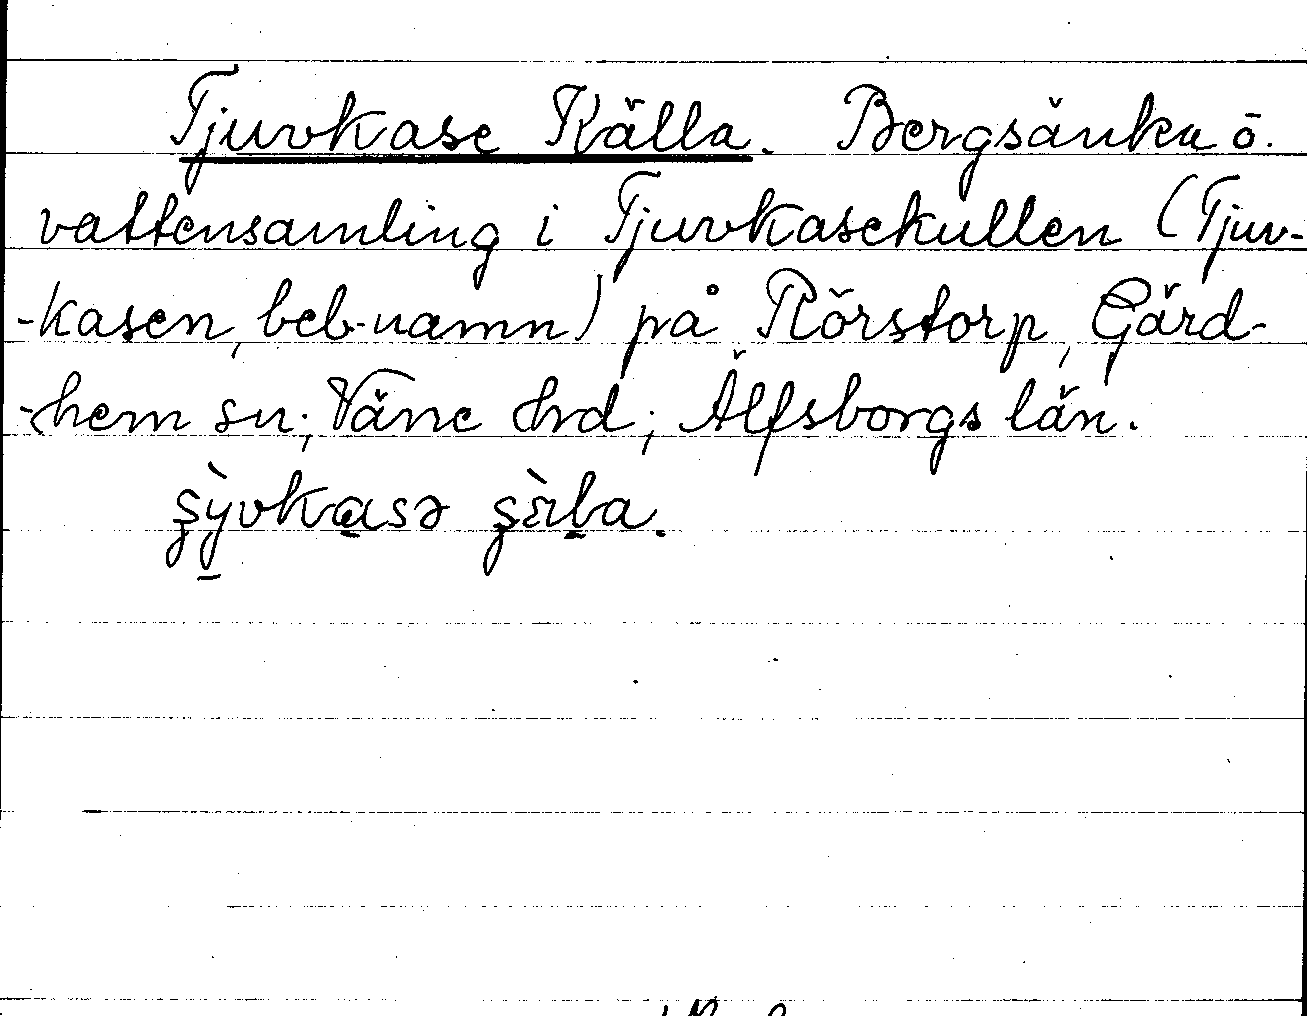 Tjuvkase Källa. Bergsänka o.
vattensamling i Tjuvkasekullen (Tjuv-
-kasen, beb-namn) på Rörstorp, Gärd-
-hem sn; Väne hrd; Älfsborgs län.